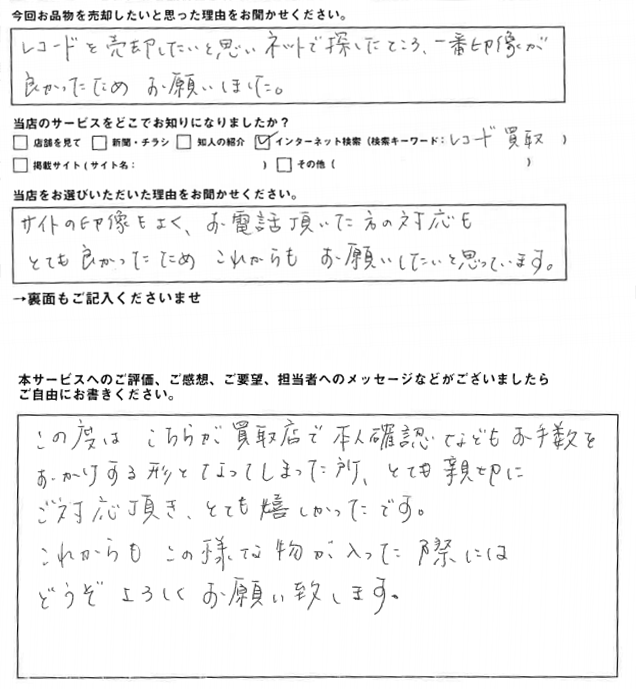 今回お品物を売却したいと思った理由をお聞かせください。
レコードを売却したいと思いネットで探したところ、一番印像が
良かったため お願いしました。
当店のサービスをどこでお知りになりましたか？
□ 店舗を見て □ 新聞・チラシ □ 知人の紹介 ☑ インターネット検索（検索キーワード：レコード 買取 ）
□ 掲載サイト（サイト名： ） □ その他（ ）
当店をお選びいただいた理由をお聞かせください。
サイトの印像もよく、お電話頂いた方の対応も
とても良かったため これからも お願いしたいと思っています。
→裏面もご記入くださいませ
本サービスへのご評価、ご感想、ご要望、担当者へのメッセージなどがございましたら
ご自由にお書きください。
この度は こちらが買取店で本人確認などもお手数を
おかけする形となってしまった所、とても親切に
ご対応頂き、とても嬉しかったです。
これからも この様な物が入った際には
どうぞ よろしく お願い致します。